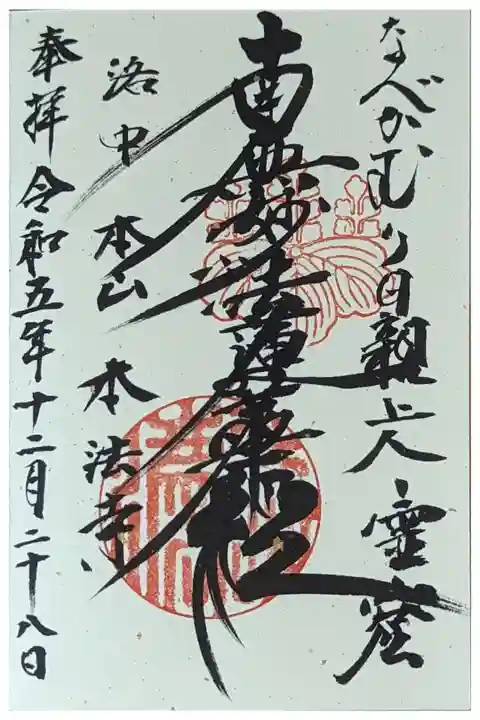 なべかむり日親上人霊窟
南無妙法蓮華経
洛中 本山 本法寺
奉拝 令和五年十二月二十八日